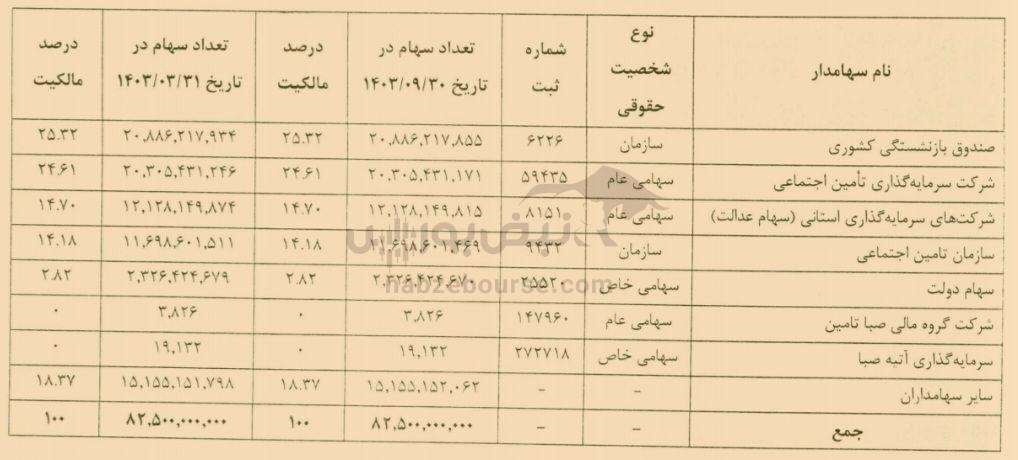 نام سهامدار | نوع شخصیت حقوقی | شماره ثبت | تعداد سهام در تاریخ ۱۴۰۳/۰۹/۳۰ | درصد مالکیت | تعداد سهام در تاریخ ۱۴۰۳/۰۳/۳۱ | درصد مالکیت
صندوق بازنشستگی کشوری | سازمان | ۶۲۲۶ | ۲۰,۸۸۶,۲۱۷,۸۵۵ | ۲۵.۳۲ | ۲۰,۸۸۶,۲۱۷,۹۳۴ | ۲۵.۳۲
شرکت سرمایه‌گذاری تأمین اجتماعی | سهامی عام | ۵۹۴۳۵ | ۲۰,۳۰۵,۴۳۱,۱۷۱ | ۲۴.۶۱ | ۲۰,۳۰۵,۴۳۱,۲۴۶ | ۲۴.۶۱
شرکت‌های سرمایه‌گذاری استانی (سهام عدالت) | سهامی عام | ۸۱۵۱ | ۱۲,۱۲۸,۱۴۹,۸۱۵ | ۱۴.۷۰ | ۱۲,۱۲۸,۱۴۹,۸۷۴ | ۱۴.۷۰
سازمان تامین اجتماعی | سازمان | ۹۴۳۲ | ۱۱,۶۹۸,۶۰۱,۴۶۹ | ۱۴.۱۸ | ۱۱,۶۹۸,۶۰۱,۵۱۱ | ۱۴.۱۸
سهام دولت | سهامی خاص | ۲۵۵۲۰ | ۲,۳۲۶,۴۲۴,۶۷۰ | ۲.۸۲ | ۲,۳۲۶,۴۲۴,۶۷۹ | ۲.۸۲
شرکت گروه مالی صبا تامین | سهامی عام | ۱۴۷۹۶۰ | ۳,۸۲۶ | ۰ | ۳,۸۲۶ | ۰
سرمایه‌گذاری آتیه صبا | سهامی خاص | ۲۷۲۷۱۸ | ۱۹,۱۳۲ | ۰ | ۱۹,۱۳۲ | ۰
سایر سهامداران | – | – | ۱۵,۱۵۵,۱۵۲,۰۶۲ | ۱۸.۳۷ | ۱۵,۱۵۵,۱۵۱,۷۹۸ | ۱۸.۳۷
جمع | – | – | ۸۲,۵۰۰,۰۰۰,۰۰۰ | ۱۰۰ | ۸۲,۵۰۰,۰۰۰,۰۰۰ | ۱۰۰
نبض بورس
nabzebourse.com